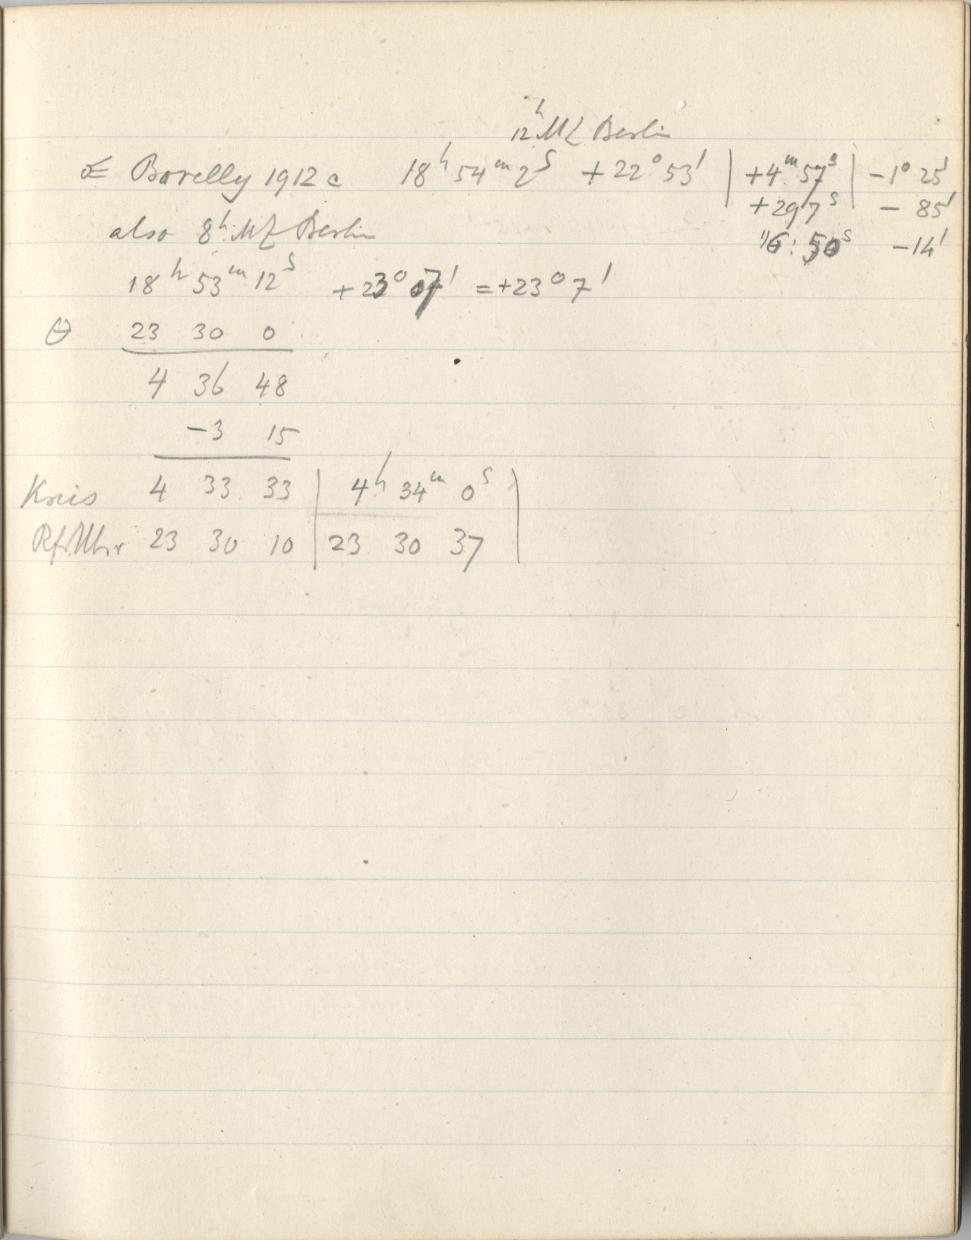 12ʰ MZ Berlin
☄ Borelly 1912 c 18ʰ 54ᵐ 2ˢ +22° 53' | +4ᵐ 57ˢ | -1° 25'
+297ˢ - 85'
also 8ʰ MZ Berlin 1/6: 50ˢ -14'
18ʰ 53ᵐ 12ˢ +23° 07' = +23° 7'
θ 23 30 0
4 36 48
-3 15
Kreis 4 33 33 | 4ʰ 34ᵐ 0ˢ |
Rf.Uhr 23 30 10 | 23 30 37 |